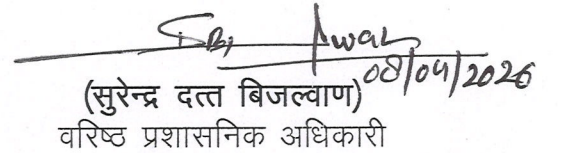 08/04/2026
(सुरेन्द्र दत्त बिजल्वाण)
वरिष्ठ प्रशासनिक अधिकारी